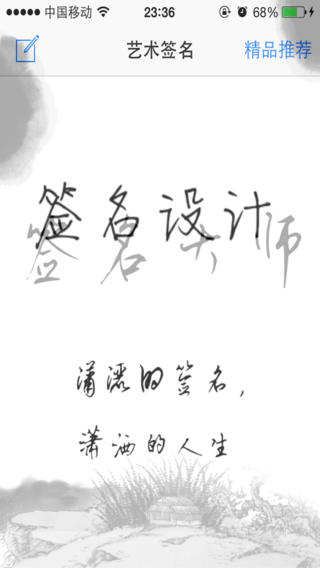 中国移动 23:36 68%
艺术签名 精品推荐
签名设计
签名大师
潇洒的签名，
潇洒的人生